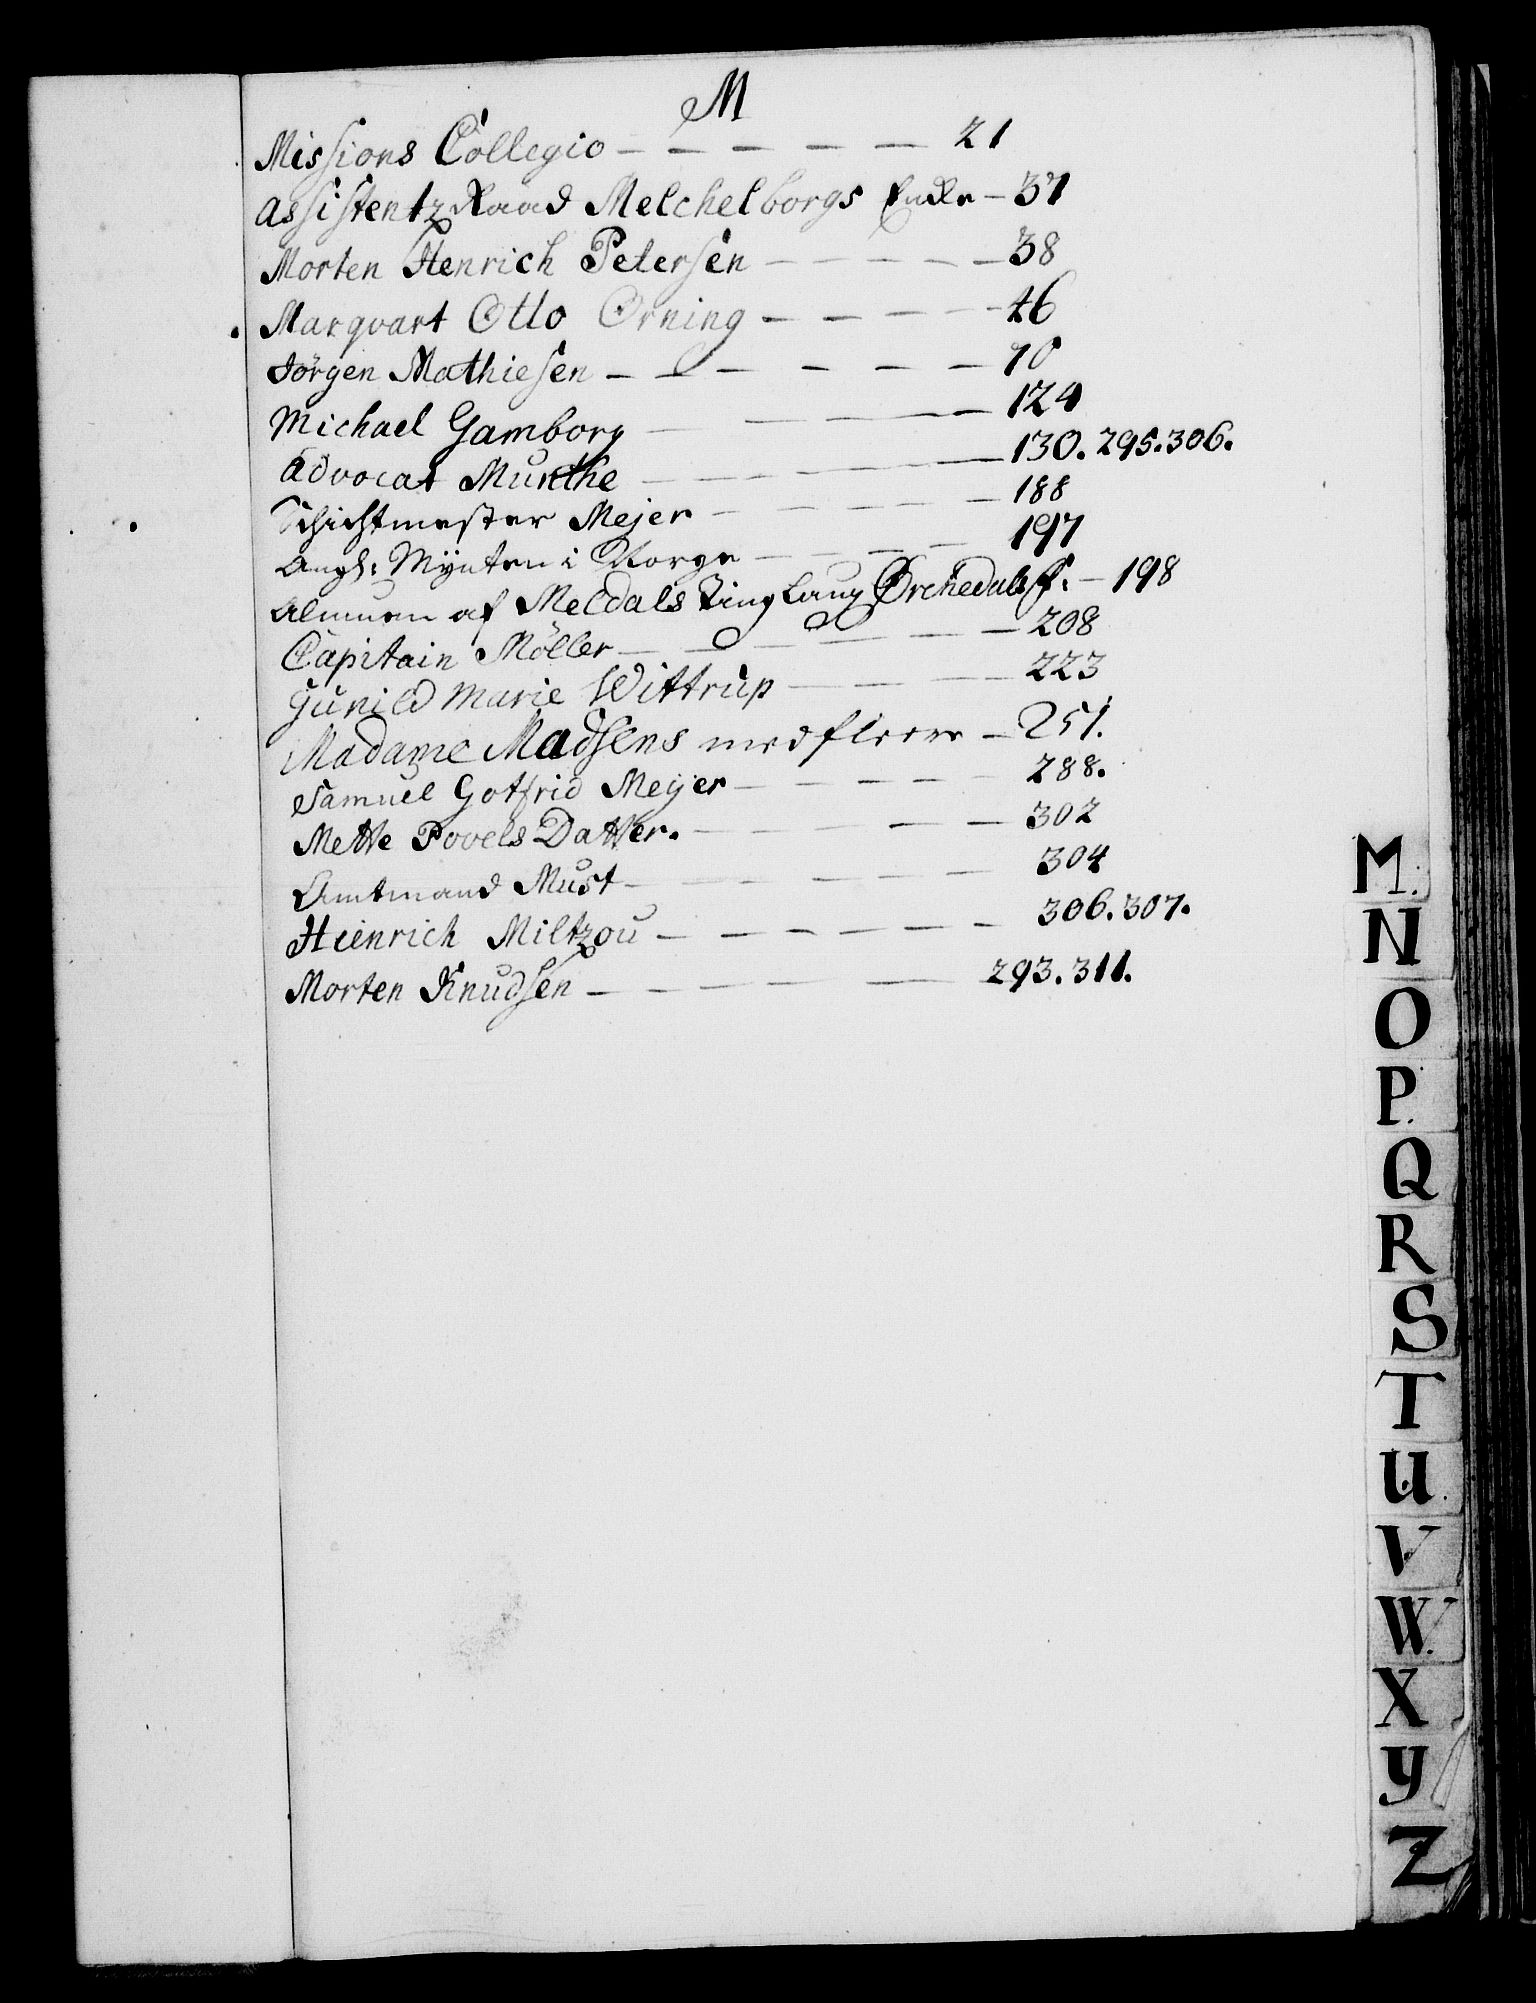 M
Missions Collegio — — — — — 21
Assistentz Raad Melchelborgs Enke — 37
Morten Henrich Petersen — — — — 38
Marqvart Otto Orning — — — — 46
Jörgen Mathiesen — — — — — — 70
Michael Gamborg — — — — 124
Advocat Munthe — — — — 130. 295. 306.
Schichtmester Mejer — — — — — 188
Angl: Mÿnten i Norge — — — — 197
Almuen af Meldals Ting Laug Orchedals f. — 198
Capitain Möller — — — — — — 208
Gunild Marie Wittrup — — — — 223
Madame Madsens med fleere — 251.
Samuel Gotfrid Meyer — — — — — 288.
Mette Povels Datter. — — — — — 302
Amtmand Must — — — — — — 304
Heinrich Miltzou — — — — — — 306. 307.
Morten Knudsen — — — — — — 293. 311.
M.
N
O
P.
Q
R
S
T
U
V
W.
X
Y
Z